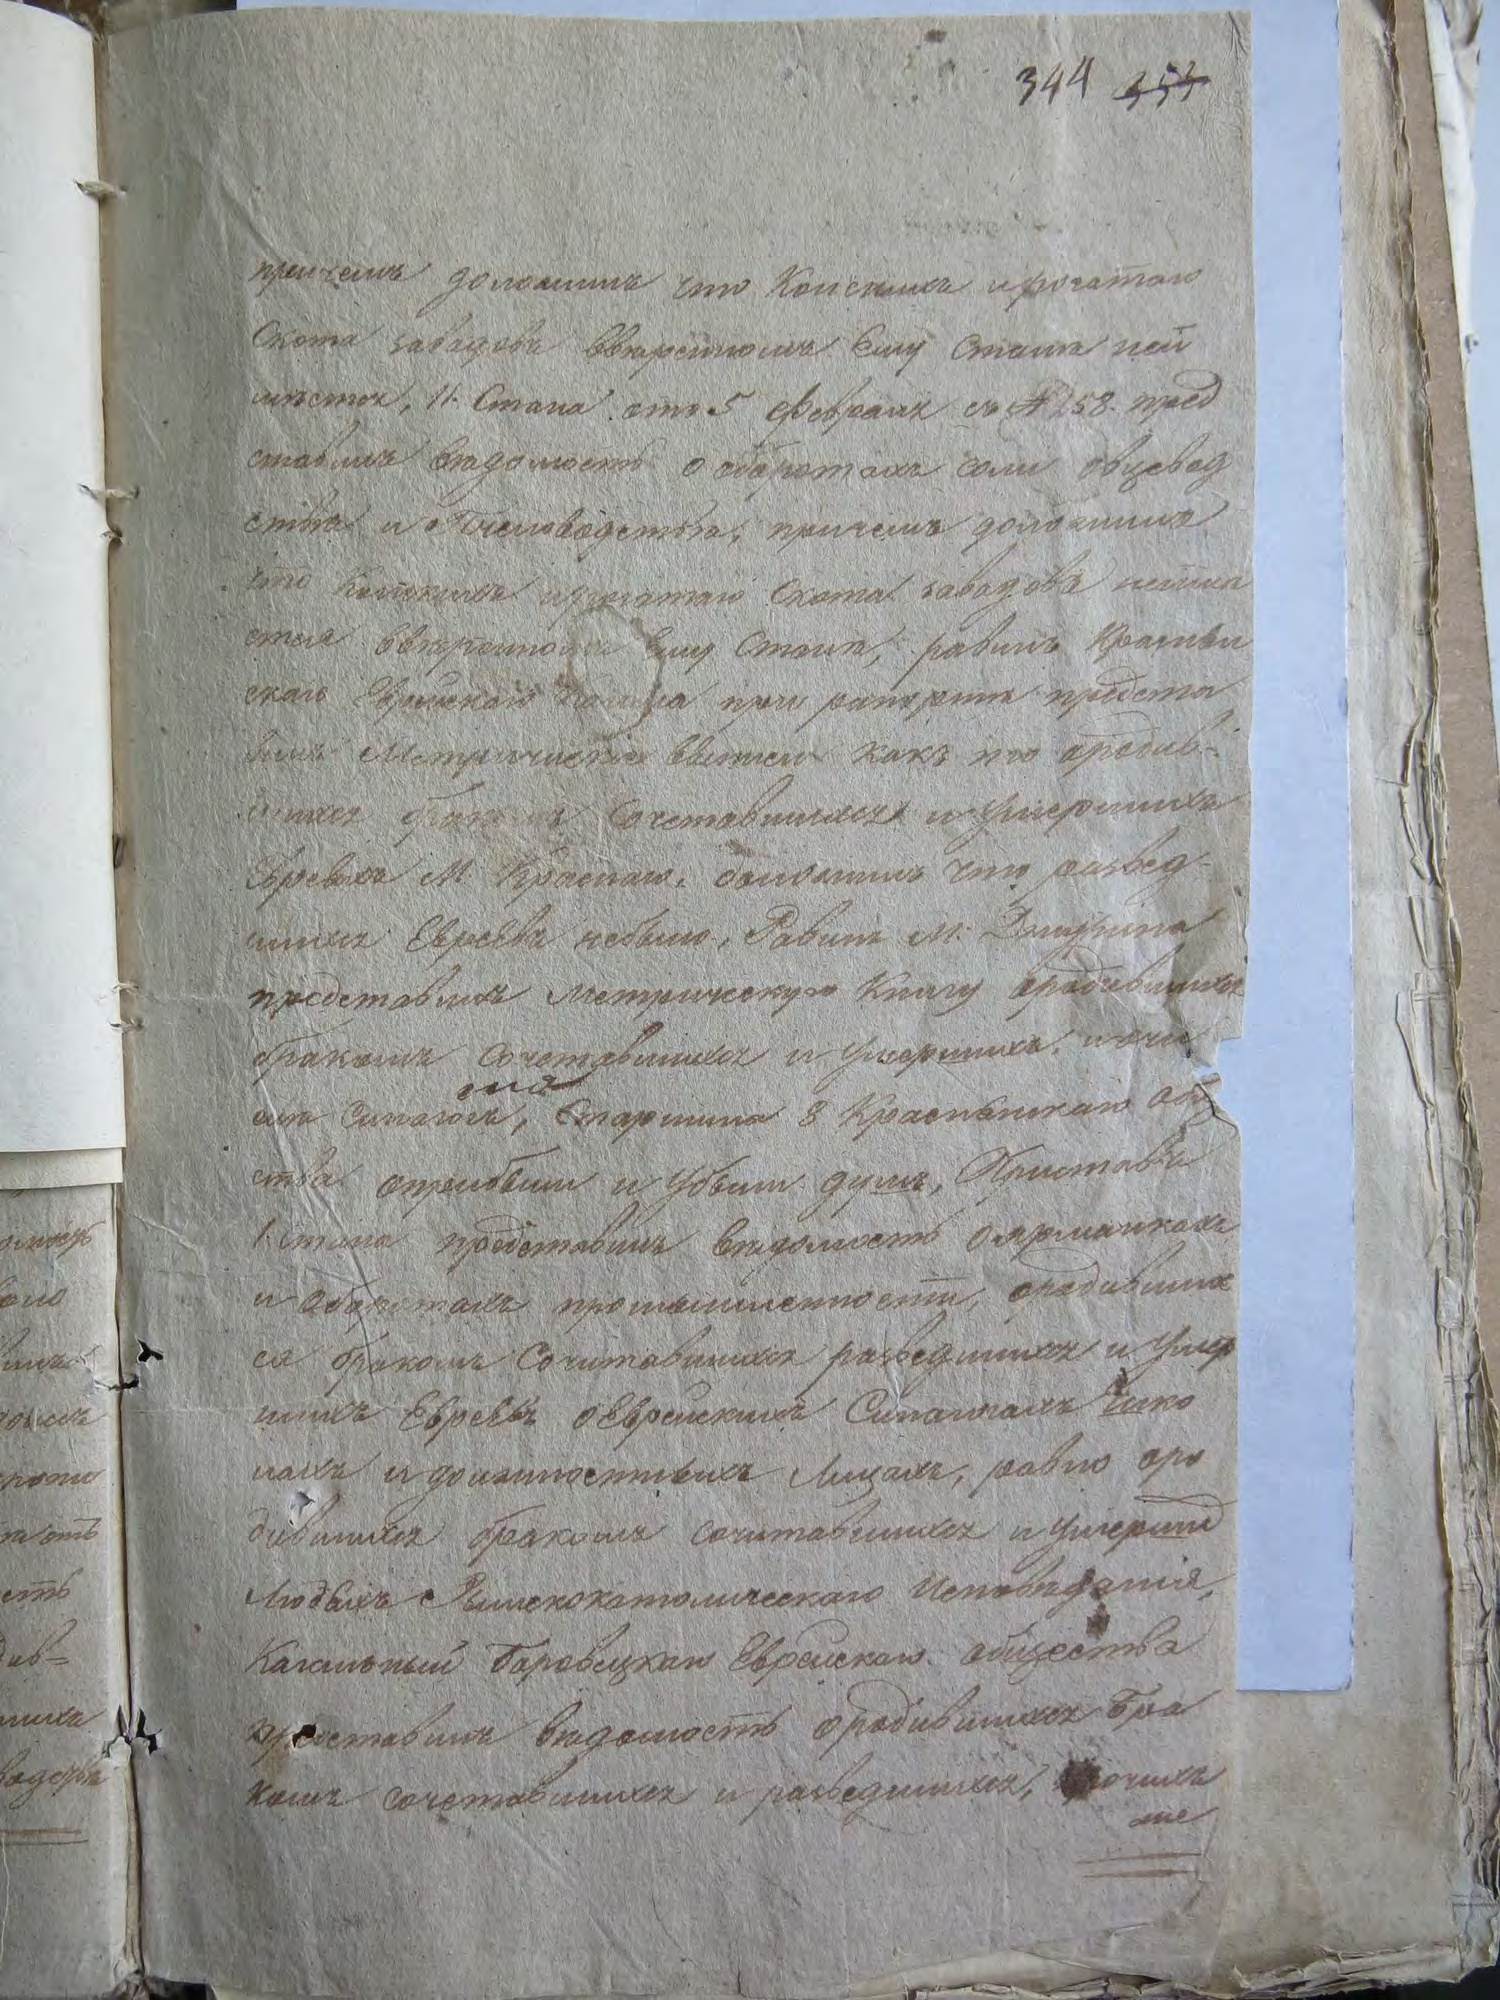 344 353
причемъ доложилъ что Конскихъ ирогатаго
Скота заводовъ Ввѣренномъ Ему Станѣ неи
мѣется, 11. Стана отъ 5 февраля съ № 258. пред
ставилъ вѣдомость о оборотахъ соли овцевод
ства и Пчеловодства, причемъ доложилъ
что Конскихъ ирогатаго Скота заводовъ неимѣ
ется ввѣренномъ Ему Станѣ, равинъ Краснян
скаго Еврейскаго Кагала при рапортѣ предста
вилъ Метрическія какъ то ородив-
шихся бракомъ Сочетавшихся и Умершихъ
Евреяхъ М. Краснаго, доложилъ что развед-
шихся Евреевъ небыло, Равинъ М.
представилъ метрическую Книгу ородившихся
бракомъ сочетавшихся и Умершихъ,
Старшина 8 Общ
ства оприбыли и Убыли душъ, Приставъ
1. Стана представилъ вѣдомость оярмаркахъ
и оборотахъ промышленности, ородивших
ся бракомъ Сочитавшихся разведшихся и Умер
шихъ Евреевъ оЕврейскихъ Синагогахъ шко
лахъ и должностныхъ Лицахъ, равно оро
дившихся бракомъ сочитавшихся и умерши
Людяхъ Римскокатолическаго Исповѣданія,
Кагальный Боровецкаго Еврейскаго общества
представилъ вѣдомость ородившихся Бра
комъ сочетавшихся и разведшихся, прочихъ
же